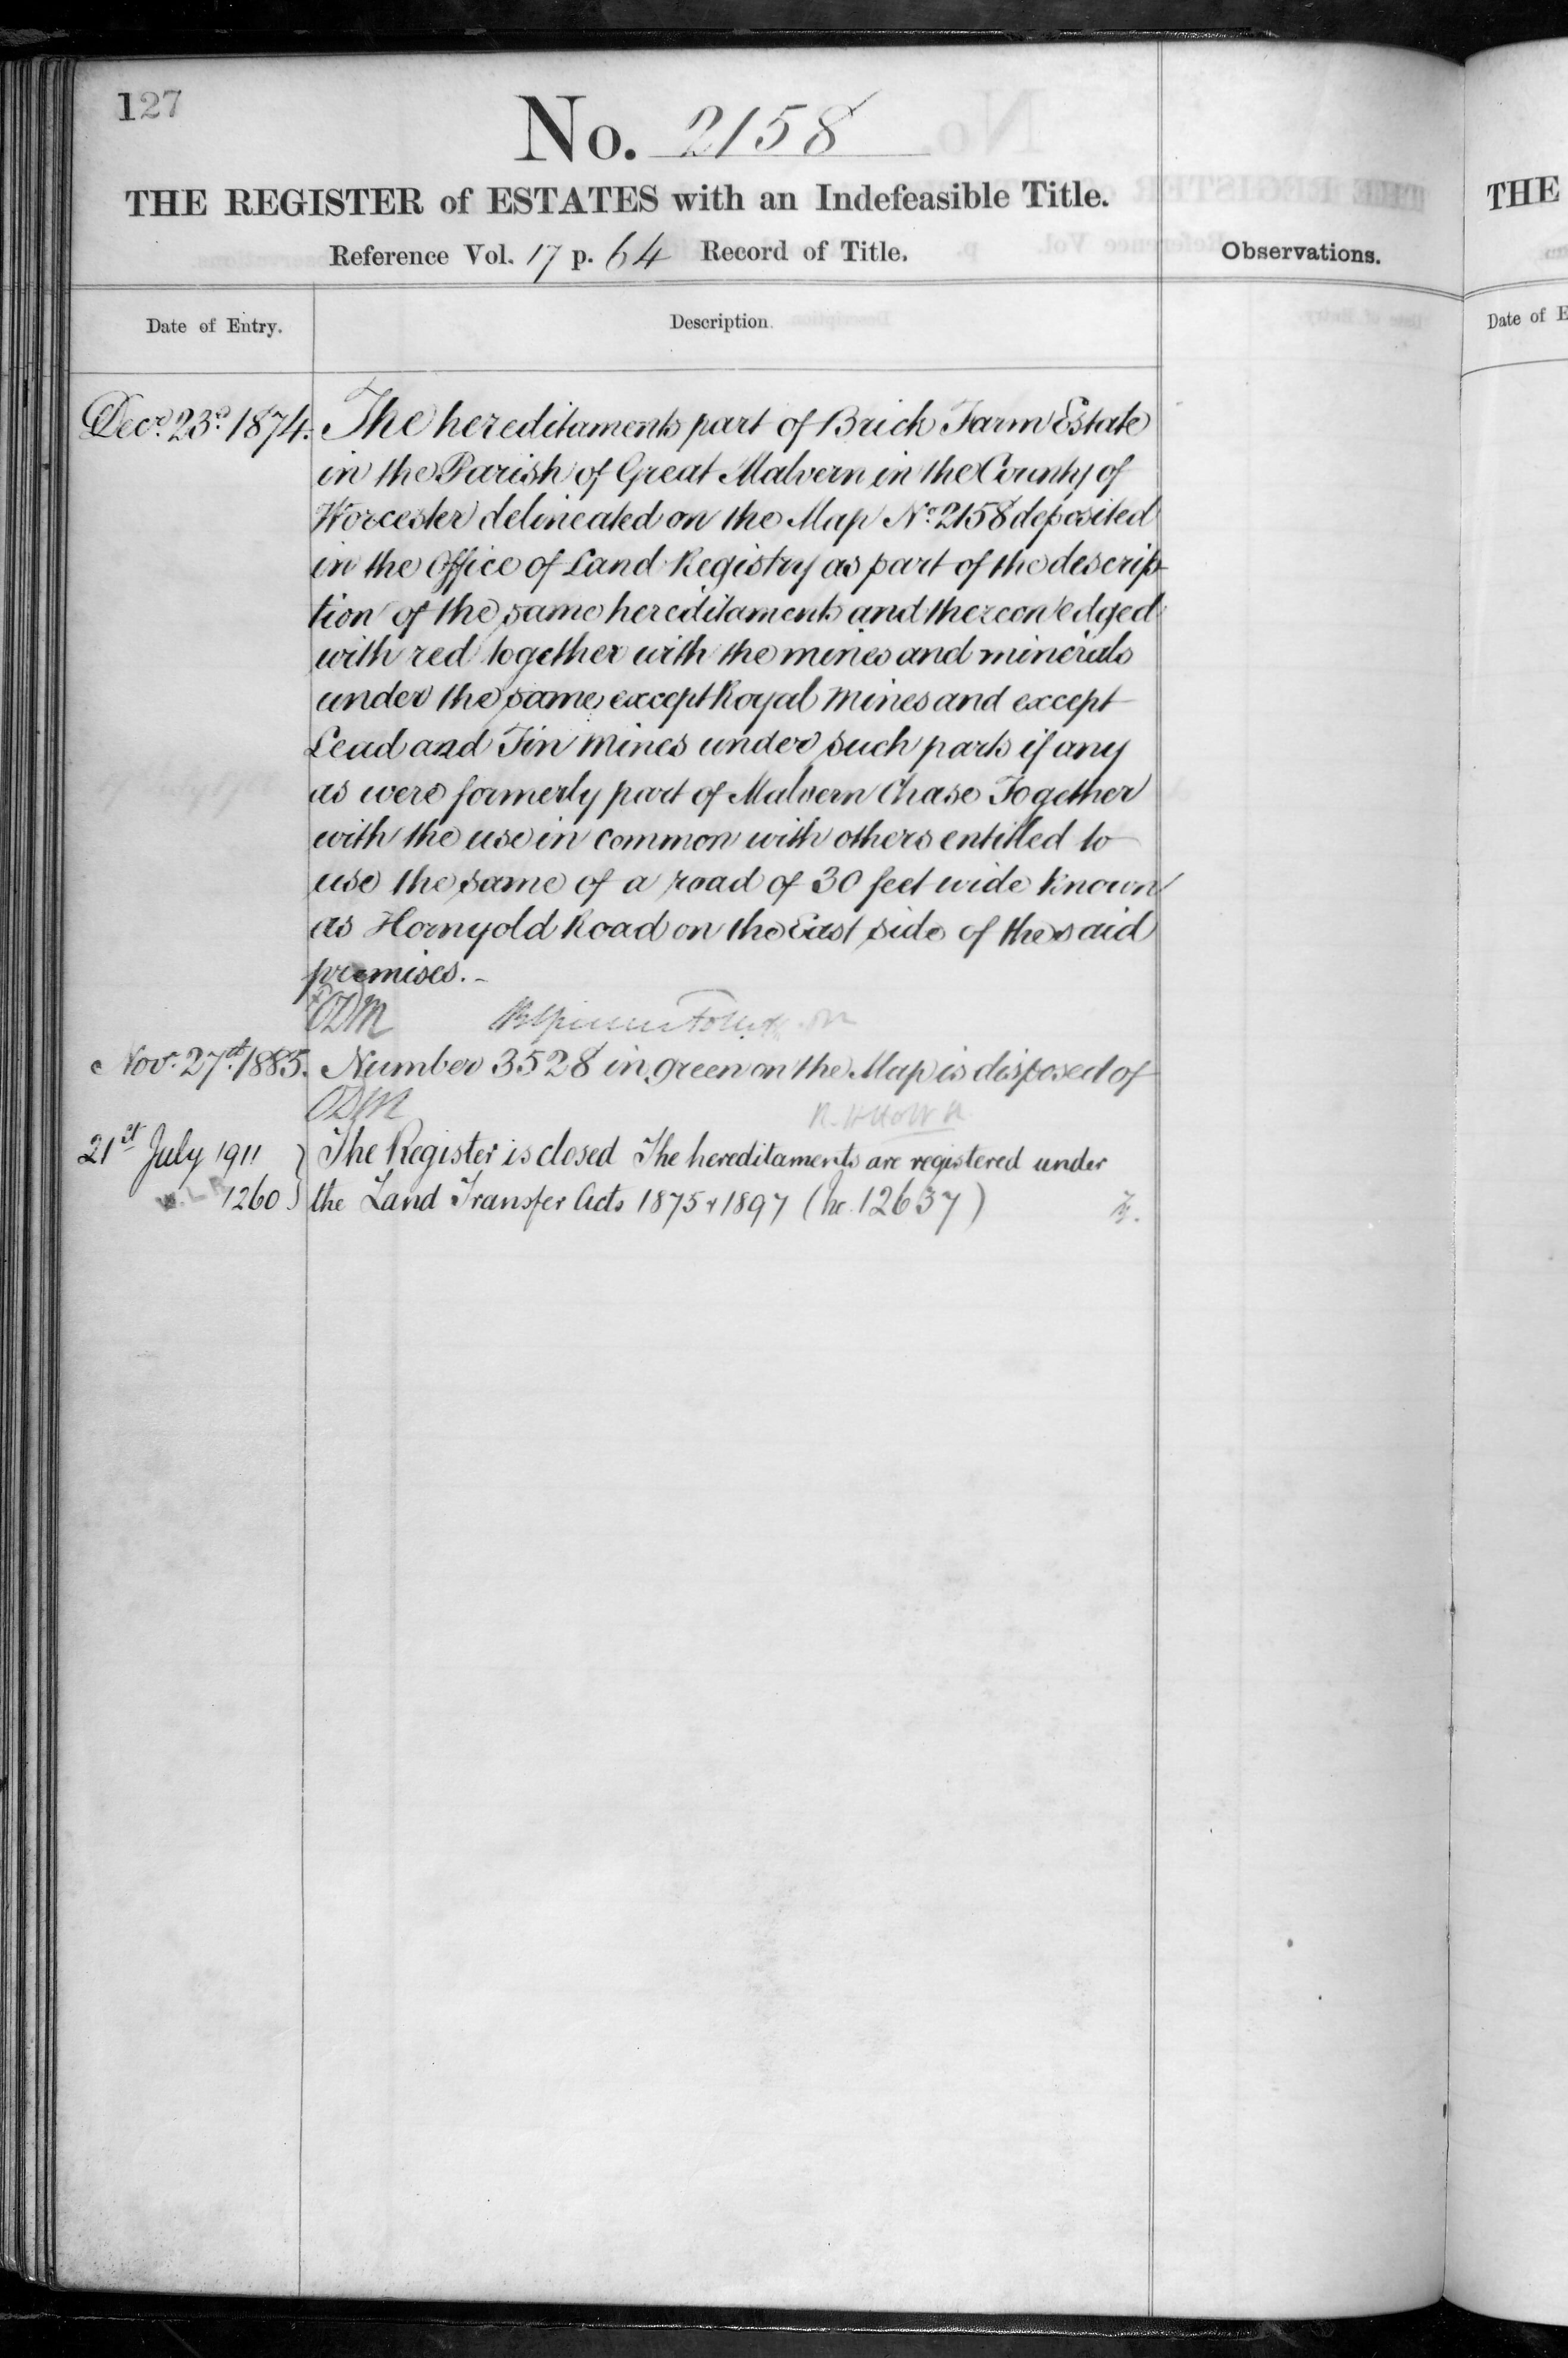 127
No. 2158
THE REGISTER of ESTATES with an Indefeasible Title.
Reference Vol. 17 p. 64 Record of Title.
Observations.
Date of Entry.
Description.
Decr. 23d. 1874. The hereditaments part of Brick Farm Estate
in the Parish of Great Malvern in the County of
Worcester delineated on the Map No. 2158 deposited
in the Office of Land Registry as part of the descrip-
tion of the same hereditaments and thereon edged
with red together with the mines and minerals
under the same except Royal Mines and except
Lead and Tin mines under such parts if any
as were formerly part of Malvern Chase Together
with the use in common with others entitled to
use the same of a road of 30 feet wide known
as Hornyold Road on the East side of the said
premises.-
Nov. 27th. 1885. Number 3528 in green on the Map is disposed of
21st July 1911 The Register is closed The hereditaments are registered under
1260 the Land Transfer Acts 1875 & 1897 (no. 12637)
THE
Date of E